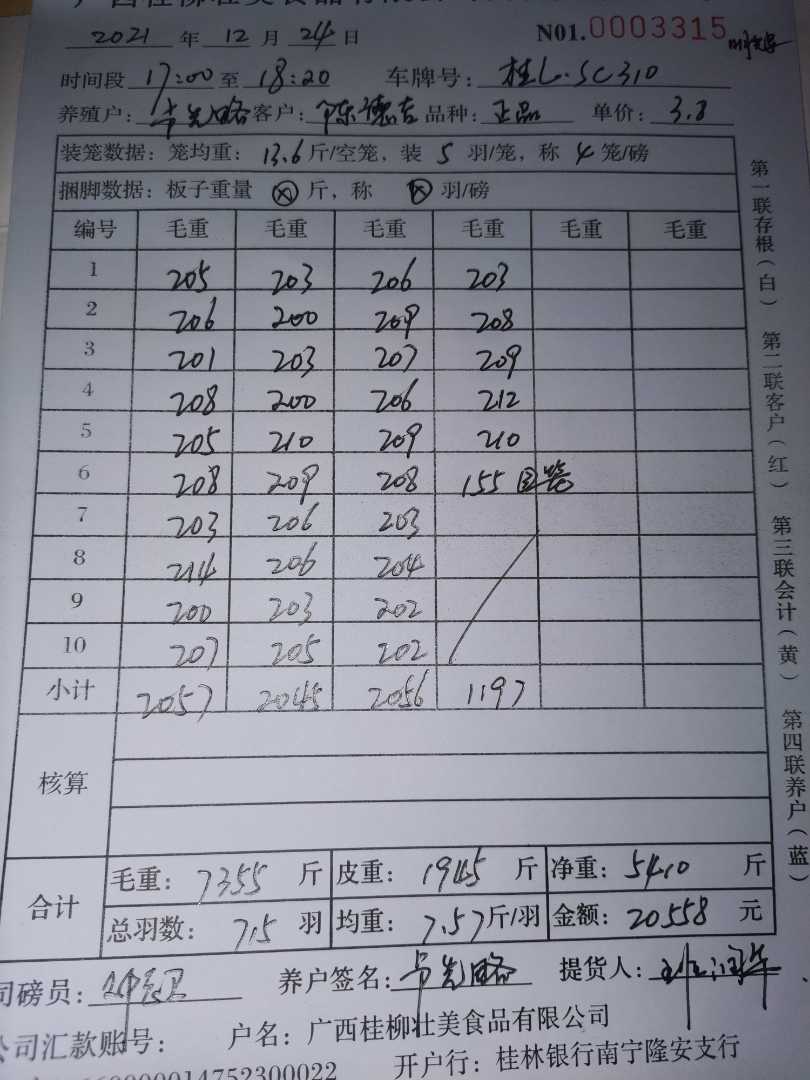 2021 年 12 月 24 日 N01.0003315
时间段 17:00 至 18:20 车牌号: 桂L·SC310
养殖户: 客户: 陈德吉 品种: 正品 单价: 3.8
装笼数据: 笼均重: 13.6 斤/空笼, 装 5 羽/笼, 称 4 笼/磅
捆脚数据: 板子重量 ⊗ 斤, 称 ⊗ 羽/磅
编号 毛重 毛重 毛重 毛重 毛重 毛重
1 205 203 206 203
2 206 200 209 208
3 201 203 207 209
4 208 200 206 212
5 205 210 209 210
6 208 209 208 155
7 203 206 203
8 214 206 204
9 200 203 202
10 207 205 202
小计 2057 2045 2056 1197
核算
合计
毛重: 7355 斤 皮重: 1945 斤 净重: 5410 斤
总羽数: 715 羽 均重: 7.57 斤/羽 金额: 20558 元
司磅员: 养户签名: 提货人:
公司汇款账号: 户名: 广西桂柳壮美食品有限公司
开户行: 桂林银行南宁隆安支行
第一联存根(白) 第二联客户(红) 第三联会计(黄) 第四联养户(蓝)